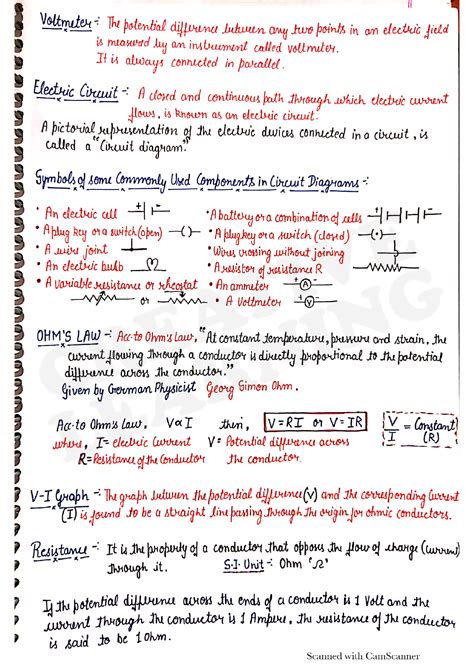 Voltmeter :- The potential difference between any two points in an electric field
is measured by an instrument called voltmeter.
It is always connected in parallel.
Electric Circuit :- A closed and continuous path through which electric current
flows, is known as an electric circuit.
A pictorial representation of the electric devices connected in a circuit, is
called a "Circuit diagram."
Symbols of some Commonly Used Components in Circuit Diagrams :-
• An electric cell + -
• A battery or a combination of cells + -
• A plug key or a switch (open) -( )-
• A plug key or a switch (closed) -(•)-
• A wire joint
• Wires crossing without joining
• An electric bulb
• A resistor of resistance R
• A variable resistance or rheostat
or
• An ammeter + A -
• A voltmeter + V -
OHM'S LAW :- Acc. to Ohm's Law, "At constant temperature, pressure and strain, the
current flowing through a conductor is directly proportional to the potential
difference across the conductor."
Given by German Physicist Georg Simon Ohm.
Acc. to Ohm's Law, V∝I then, V=RI or V=IR V/I = Constant (R)
where, I= electric current V= Potential difference across
R= Resistance of the Conductor the conductor.
V-I Graph :- The graph between the potential difference (V) and the corresponding Current
(I) is found to be a straight line passing through the origin for ohmic conductors.
Resistance :- It is the property of a conductor that opposes the flow of charge (current)
through it. S.I. Unit :- Ohm 'Ω'
If the potential difference across the ends of a conductor is 1 Volt and the
current through the conductor is 1 Ampere, the resistance of the conductor
is said to be 1 Ohm.
Scanned with CamScanner